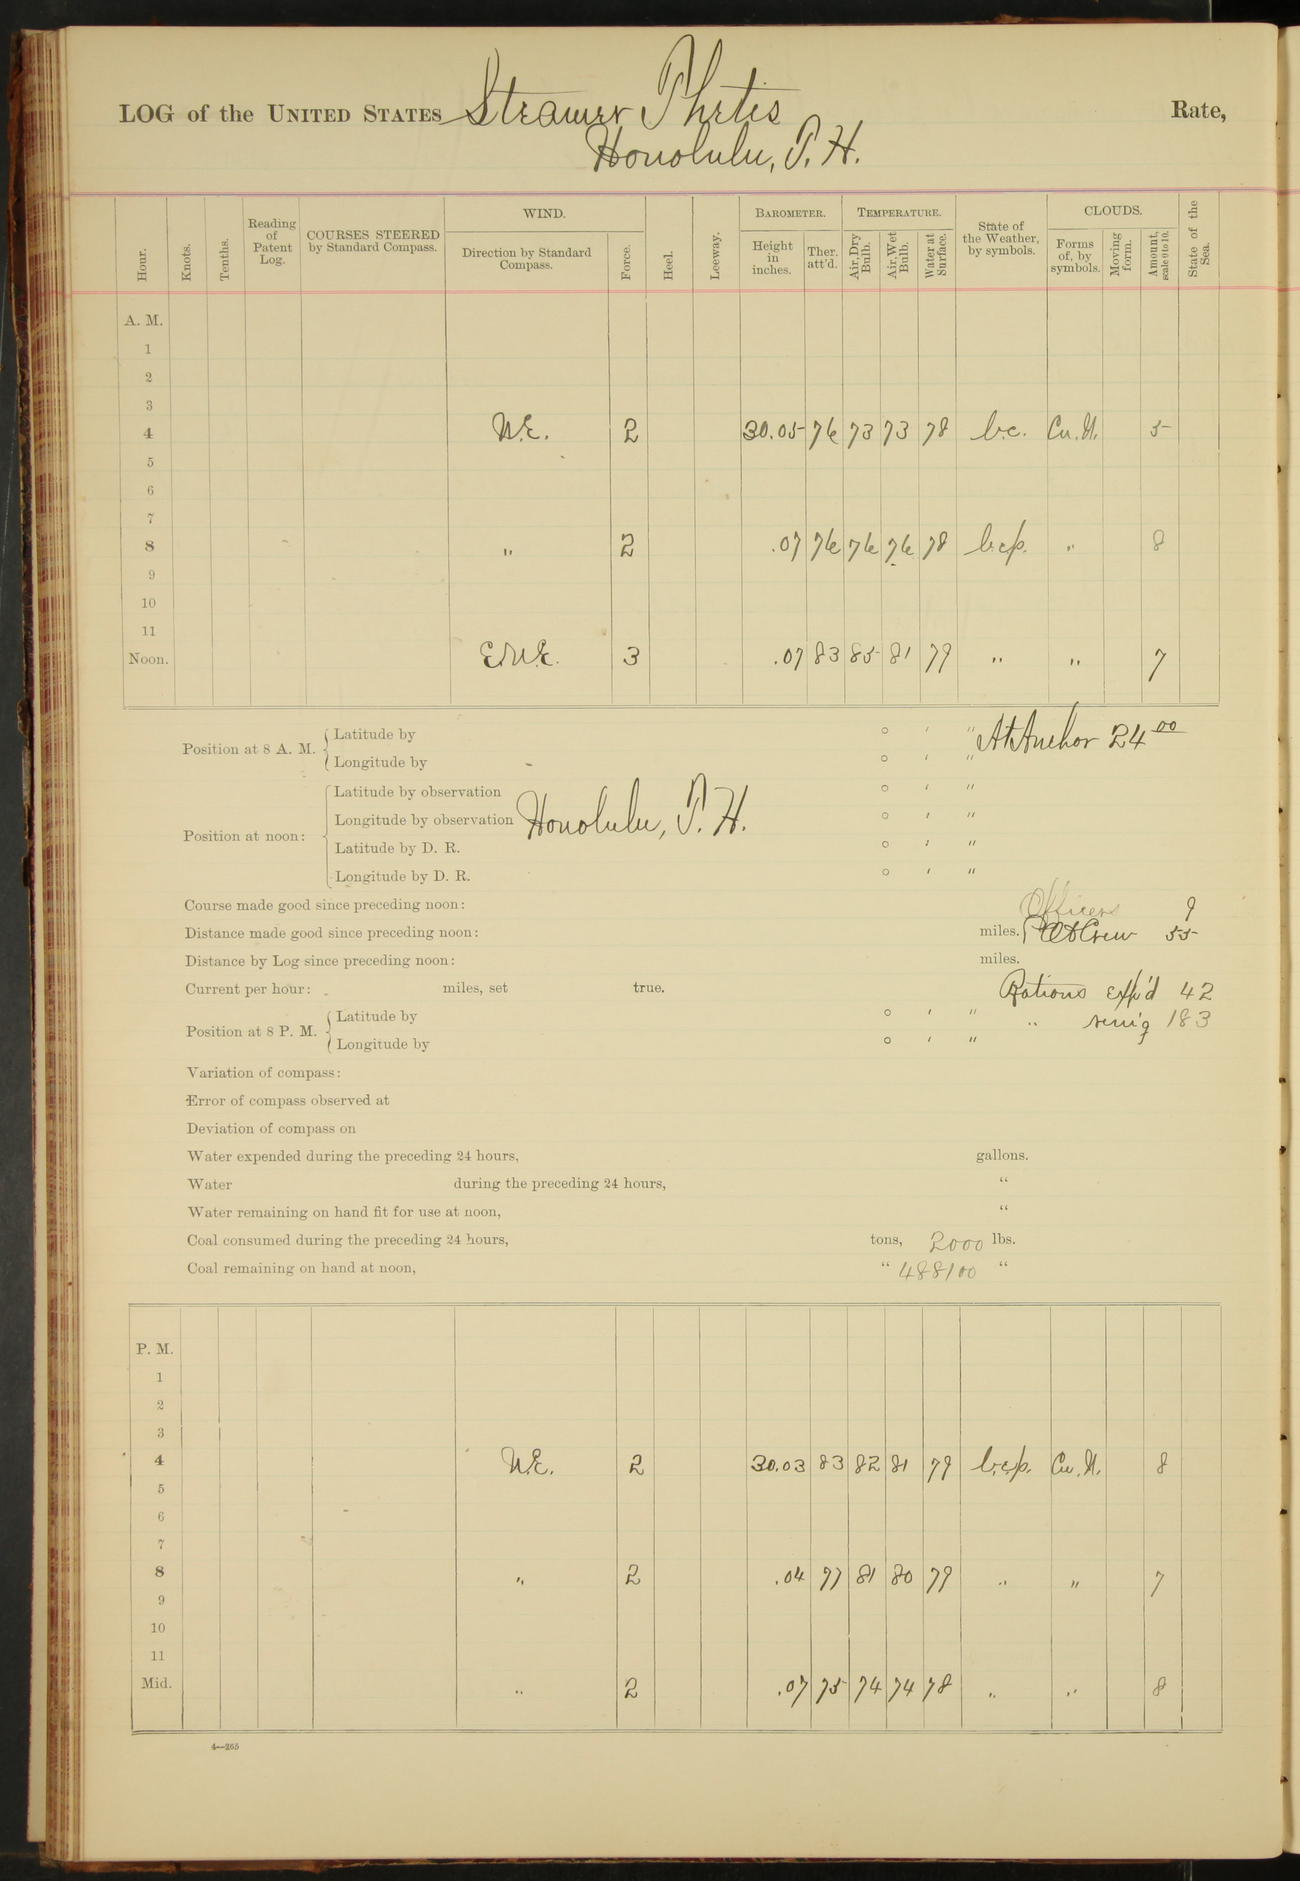 LOG of the UNITED STATES Steamer Thetis Rate,
Honolulu, T. H.
Hour. Knots. Tenths. Reading of Patent Log. COURSES STEERED by Standard Compass. WIND. Direction by Standard Compass. Force. Heel. Leeway. BAROMETER. Height in inches. Ther. att'd. TEMPERATURE. Air, Dry Bulb. Air, Wet Bulb. Water at Surface. State of the Weather, by symbols. CLOUDS. Forms of, by symbols. Moving form. Amount, scale 0 to 10. State of the Sea.
A. M.
1
2
3
4 N.E. 2 30.05 76 73 73 78 b.c. Cu. N. 5
5
6
7
8 " 2 .07 76 76 76 78 b.c.p. " 8
9
10
11
Noon. E.N.E. 3 .07 83 85 81 79 " " 7
Position at 8 A. M. Latitude by ° ′ ″ At Anchor 24 00
Longitude by ° ′ ″
Position at noon: Latitude by observation ° ′ ″
Longitude by observation Honolulu, T. H. ° ′ ″
Latitude by D. R. ° ′ ″
Longitude by D. R. ° ′ ″
Course made good since preceding noon: Officers 9
Distance made good since preceding noon: miles. Crew 55
Distance by Log since preceding noon: miles.
Current per hour: miles, set true. Rations exp'd 42
Position at 8 P. M. Latitude by ° ′ ″ " rem'g 183
Longitude by ° ′ ″
Variation of compass:
Error of compass observed at
Deviation of compass on
Water expended during the preceding 24 hours, gallons.
Water during the preceding 24 hours, "
Water remaining on hand fit for use at noon, "
Coal consumed during the preceding 24 hours, tons, 2000 lbs.
Coal remaining on hand at noon, " 488100 "
P. M.
1
2
3
4 N.E. 2 30.03 83 82 81 79 b.c.p. Cu. N. 8
5
6
7
8 " 2 .04 77 81 80 79 " " 7
9
10
11
Mid. " 2 .07 75 74 74 78 " " 8
4—265